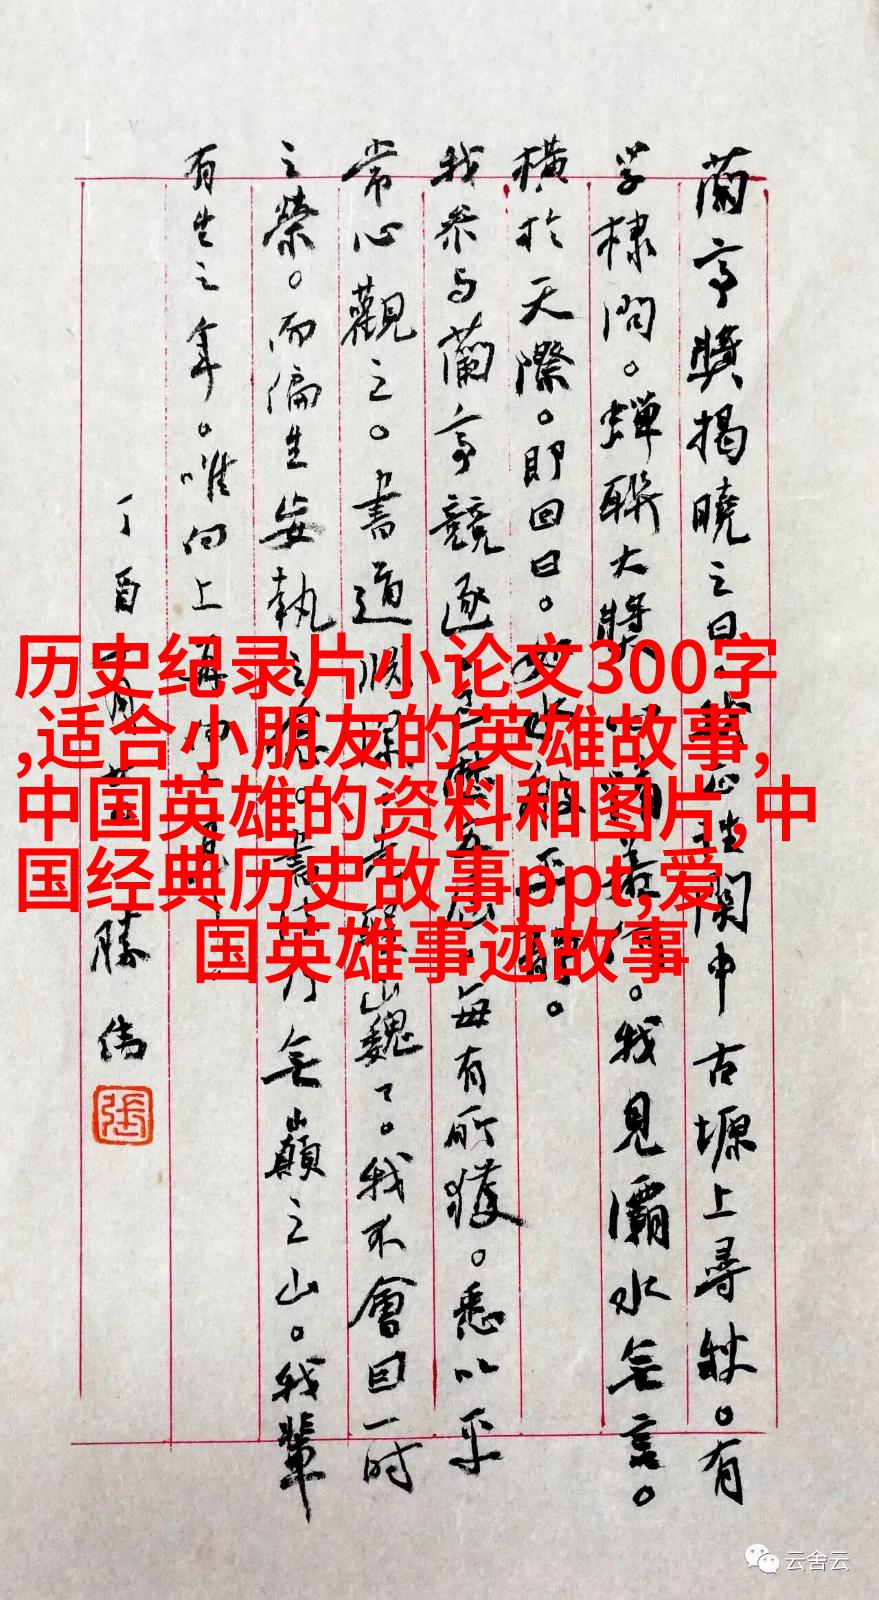 历史纪录片小论文300字
,适合小朋友的英雄故事,
中国英雄的资料和图片,中
国经典历史故事ppt,爱
国英雄事迹故事
蘭亭獎揭曉之日 關中古塬上尋秋。有
学棣問。蟬聯大獎 。我見灞水無言。
橫於天際。即回曰。如水般平
我参与蘭亭競逐 每有所獲。悉以平
常心觀之。書道 巍々。我不會因一时
之榮。而偏生妄執之 書 乃無巔之山。我輩
有生之年。唯向上再向
丁酉 勝偉
張
云舍云